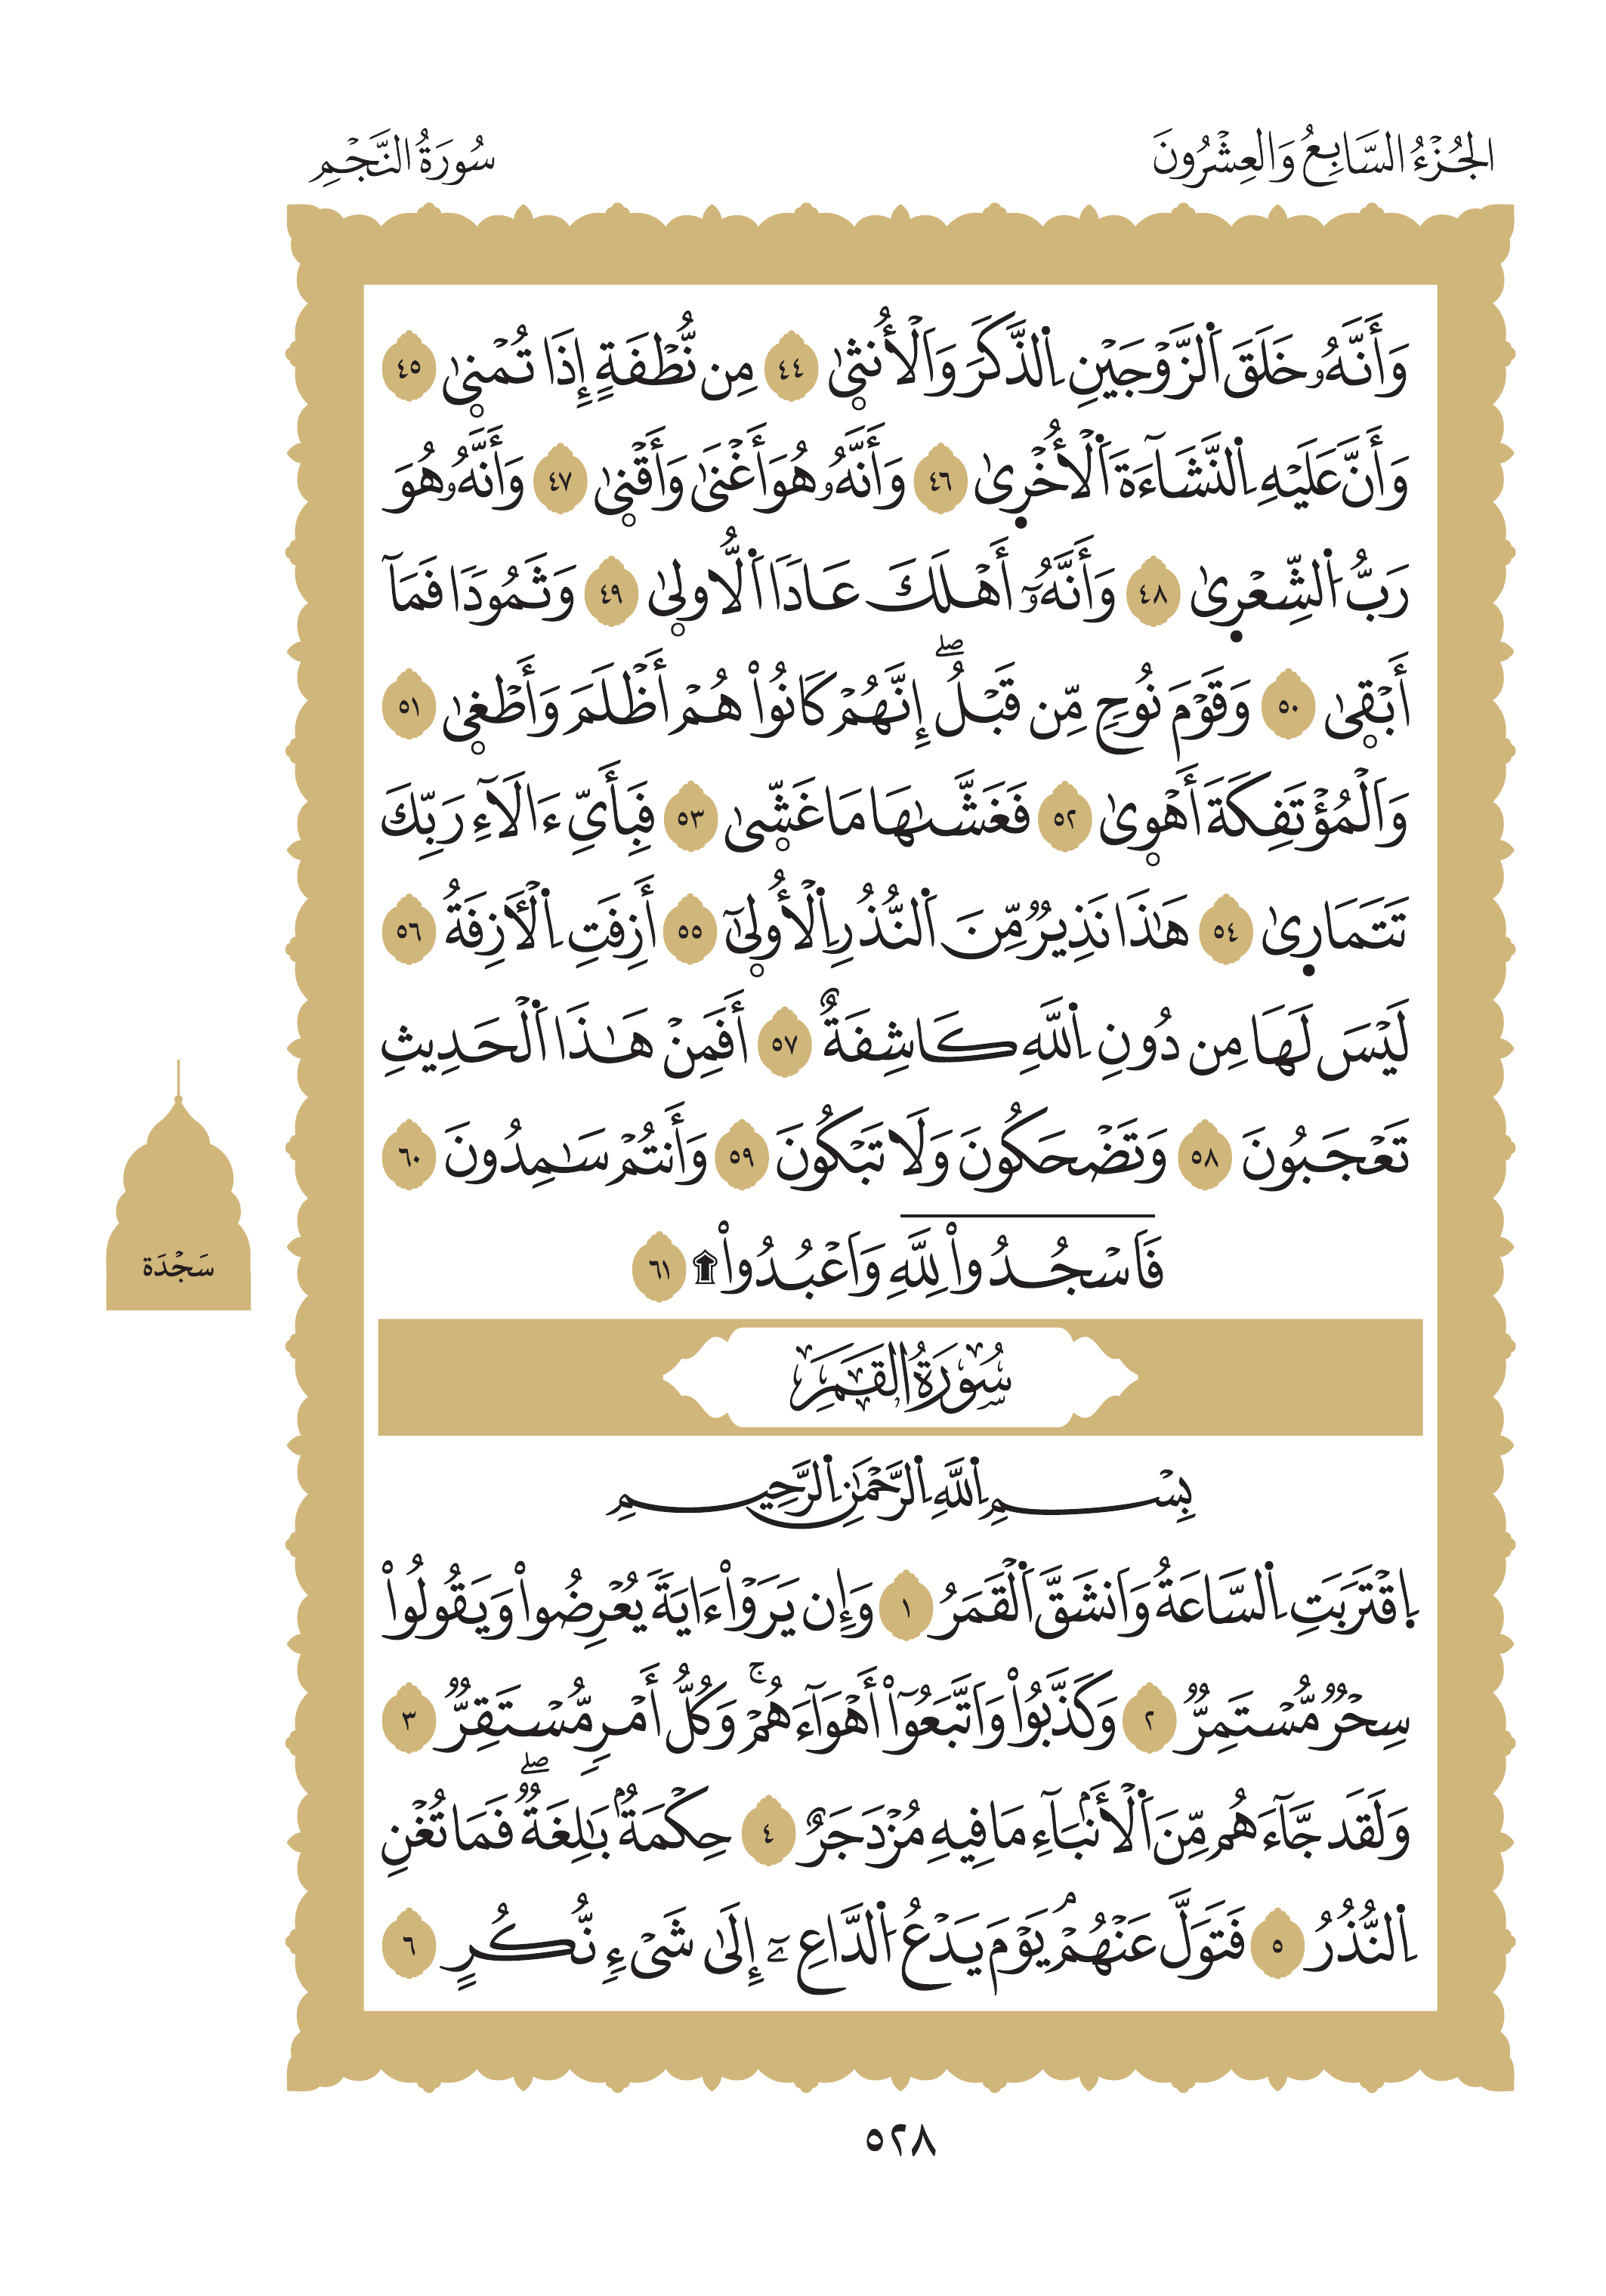 الجُزْءُ السَّابِعُ وَالعِشْرُونَ
سُورَةُ النَّجْمِ
وَأَنَّهُۥ خَلَقَ اَ۬لزَّوْجَيْنِ اِ۬لذَّكَرَ وَالْأُنث۪ىٰ ٤٤ مِن نُّطْفَةٍ إِذَا تُمْن۪ىٰ ٤٥
وَأَنَّ عَلَيْهِ اِ۬لنَّشَآءَةَ اَ۬لْأُخْر۪ىٰ ٤٦ وَأَنَّهُۥ هُوَ أَغْنَىٰ وَأَقْن۪ىٰ ٤٧ وَأَنَّهُۥ هُوَ
رَبُّ اُ۬لشِّعْر۪ىٰ ٤٨ وَأَنَّهُۥٓ أَهْلَكَ عَادَا اَ۬لُّاول۪ىٰ ٤٩ وَثَمُودَا فَمَآ
أَبْق۪ىٰ ٥٠ وَقَوْمَ نُوحٖ مِّن قَبْلُۖ إِنَّهُمْ كَانُواْ هُمْ أَظْلَمَ وَأَطْغ۪ىٰ ٥١
وَالْمُؤْتَفِكَةَ أَهْو۪ىٰ ٥٢ فَغَشَّىٰهَا مَا غَشّ۪ىٰ ٥٣ فَبِأَيِّ ءَالَآءِ رَبِّكَ
تَتَمَار۪ىٰ ٥٤ هَٰذَا نَذِيرٞ مِّنَ اَ۬لنُّذُرِ اِ۬لْأُول۪ىٰٓ ٥٥ أَزِفَتِ اِ۬لْأٓزِفَةُ ٥٦
لَيْسَ لَهَا مِن دُونِ اِ۬للَّهِ كَاشِفَةٌ ٥٧ أَفَمِنْ هَٰذَا اَ۬لْحَدِيثِ
تَعْجَبُونَ ٥٨ وَتَضْحَكُونَ وَلَا تَبْكُونَ ٥٩ وَأَنتُمْ سَٰمِدُونَ ٦٠
فَاسْجُدُواْ لِلَّهِ وَاعْبُدُواْ۩ ٦١
سَجْدَة
سُورَةُ القَمَرِ
بِسْمِ اِ۬للَّهِ اِ۬لرَّحْمَٰنِ اِ۬لرَّحِيمِ
اِ۪قْتَرَبَتِ اِ۬لسَّاعَةُ وَانشَقَّ اَ۬لْقَمَرُ ١ وَإِن يَرَوْاْ ءَايَةٗ يُعْرِضُواْ وَيَقُولُواْ
سِحْرٞ مُّسْتَمِرّٞ ٢ وَكَذَّبُواْ وَاتَّبَعُوٓاْ أَهْوَآءَهُمْۚ وَكُلُّ أَمْرٖ مُّسْتَقِرّٞ ٣
وَلَقَد جَّآءَهُم مِّنَ اَ۬لْأَنۢبَآءِ مَا فِيهِ مُزْدَجَرٌ ٤ حِكْمَةُۢ بَٰلِغَةٞۖ فَمَا تُغْنِ
اِ۬لنُّذُرُ ٥ فَتَوَلَّ عَنْهُمُۥ يَوْمَ يَدْعُ اُ۬لدَّاعِۦٓ إِلَىٰ شَيْءٖ نُّكُرٍ ٦
٥٢٨